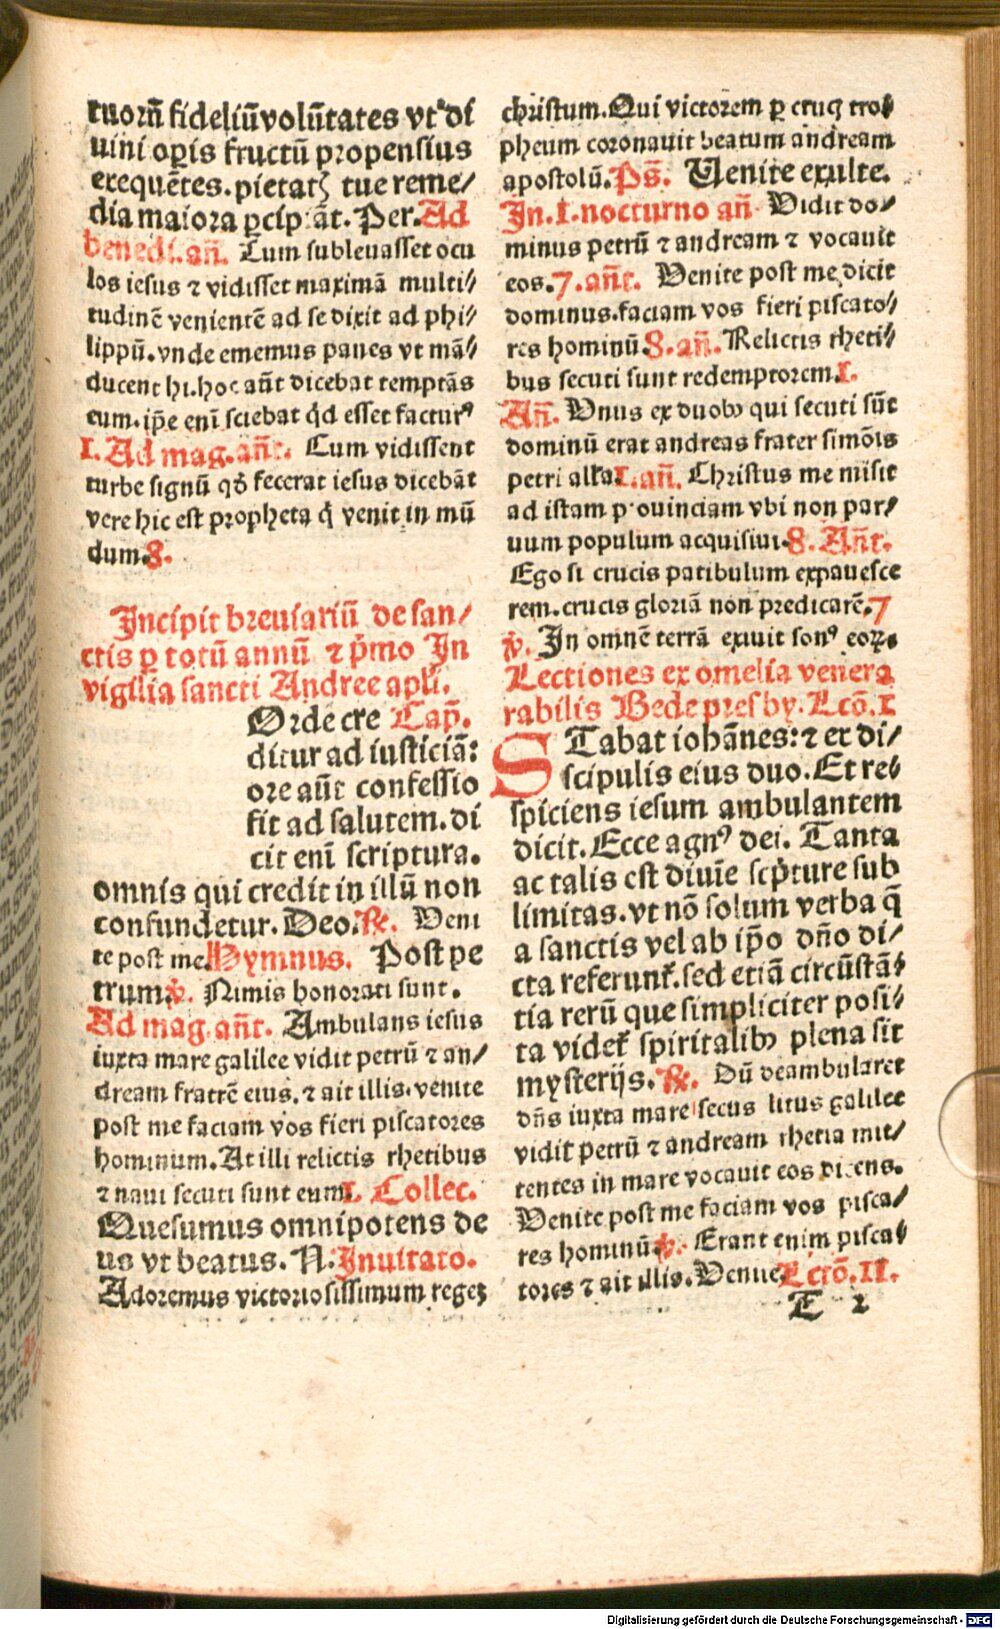 tuorū fideliū volūtates vt di
uini oꝑis fructū propensius
exequētes. pietatꝫ tue reme/
dia maiora ꝑcipiāt. Per. Ad
benedi. an̄. Cum subleuasset ocu
los iesus ⁊ vidisset maximā multi/
tudinē venientē ad se dixit ad phi/
lippū. vnde ememus panes vt mā/
ducent hi. hoc aūt dicebat temptās
eum. ip̄e enī sciebat qd̄ esset facturꝰ
I. Ad mag. an̄t. Cum vidissent
turbe signū qd̄ fecerat iesus dicebāt
vere hic est propheta q̄ venit in mū
dum. 8.
Incipit breuiariū de san/
ctis ꝑ totū annū ⁊ p̄mo In
vigilia sancti Andree apl̄i.
Orde cre Cap̄.
ditur ad iusticiā:
ore aūt confessio
fit ad salutem. di
cit enī scriptura.
omnis qui credit in illū non
confundetur. Deo. ℟. Veni
te post me. Hymnus. Post pe
trum ℣. Nimis honorati sunt.
Ad mag. an̄t. Ambulans iesus
iuxta mare galilee vidit petrū ⁊ an/
dream fratrē eius. ⁊ ait illis. venite
post me faciam vos fieri piscatores
hominum. At illi relictis rhetibus
⁊ naui secuti sunt eum I. Collec.
Quesumus omnipotens de
us vt beatus. N. Inuitato.
Adoremus victoriosissimum regeꝫ
christum. Qui victorem ꝑ crucꝫ tro/
pheum coronauit beatum andream
apostolū. Ps̄. Uenite exulte.
In. I. nocturno an̄ Vidit do/
minus petrū ⁊ andream ⁊ vocauit
eos. 7. an̄t. Venite post me dicit
dominus. faciam vos fieri piscato/
res hominū. 8. an̄. Relictis rheti/
bus secuti sunt redemptorem. I.
An̄. Vnus ex duobꝰ qui secuti sūt
dominū erat andreas frater simōis
petri alła I. an̄. Christus me misit
ad istam prouinciam vbi non par/
uum populum acquisiui. 8. An̄t.
Ego si crucis patibulum expauesce
rem. crucis gloriā non predicarē. 7
℣. In omnē terrā exiuit sonꝰ eoꝝ.
Lectiones ex omelia venera
rabilis Bede presby. Lcō. I
STabat iohānes: ⁊ ex di/
scipulis eius duo. Et re/
spiciens iesum ambulantem
dicit. Ecce agnꝰ dei. Tanta
ac talis est diuīe scp̄ture sub
limitas. vt nō solum verba q̄
a sanctis vel ab ip̄o dn̄o di/
cta referunt̄. sed etiā circūstā/
tia rerū que simpliciter posi/
ta videt̄ spiritalibꝰ plena sit
mysterijs. ℟. Dū deambularet
dn̄s iuxta mare secus litus galilee
vidit petrū ⁊ andream rhetia mit/
tentes in mare vocauit eos dicens.
Venite post me faciam vos pisca/
res hominū ℣. Erant enim pisca/
tores ⁊ ait illis. Venite Lctō. II.
E 2
Digitalisierung gefördert durch die Deutsche Forschungsgemeinschaft - DFG